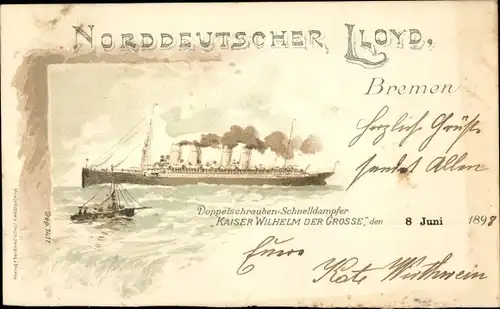 NORDDEUTSCHER LLOYD,
Bremen
Herzlich Grüße
sendet Allen
Doppelschrauben-Schnelldampfer
„KAISER WILHELM DER GROSSE,” den 8 Juni 1898
Eure
Kate Wirthwein
Dep. 1417.